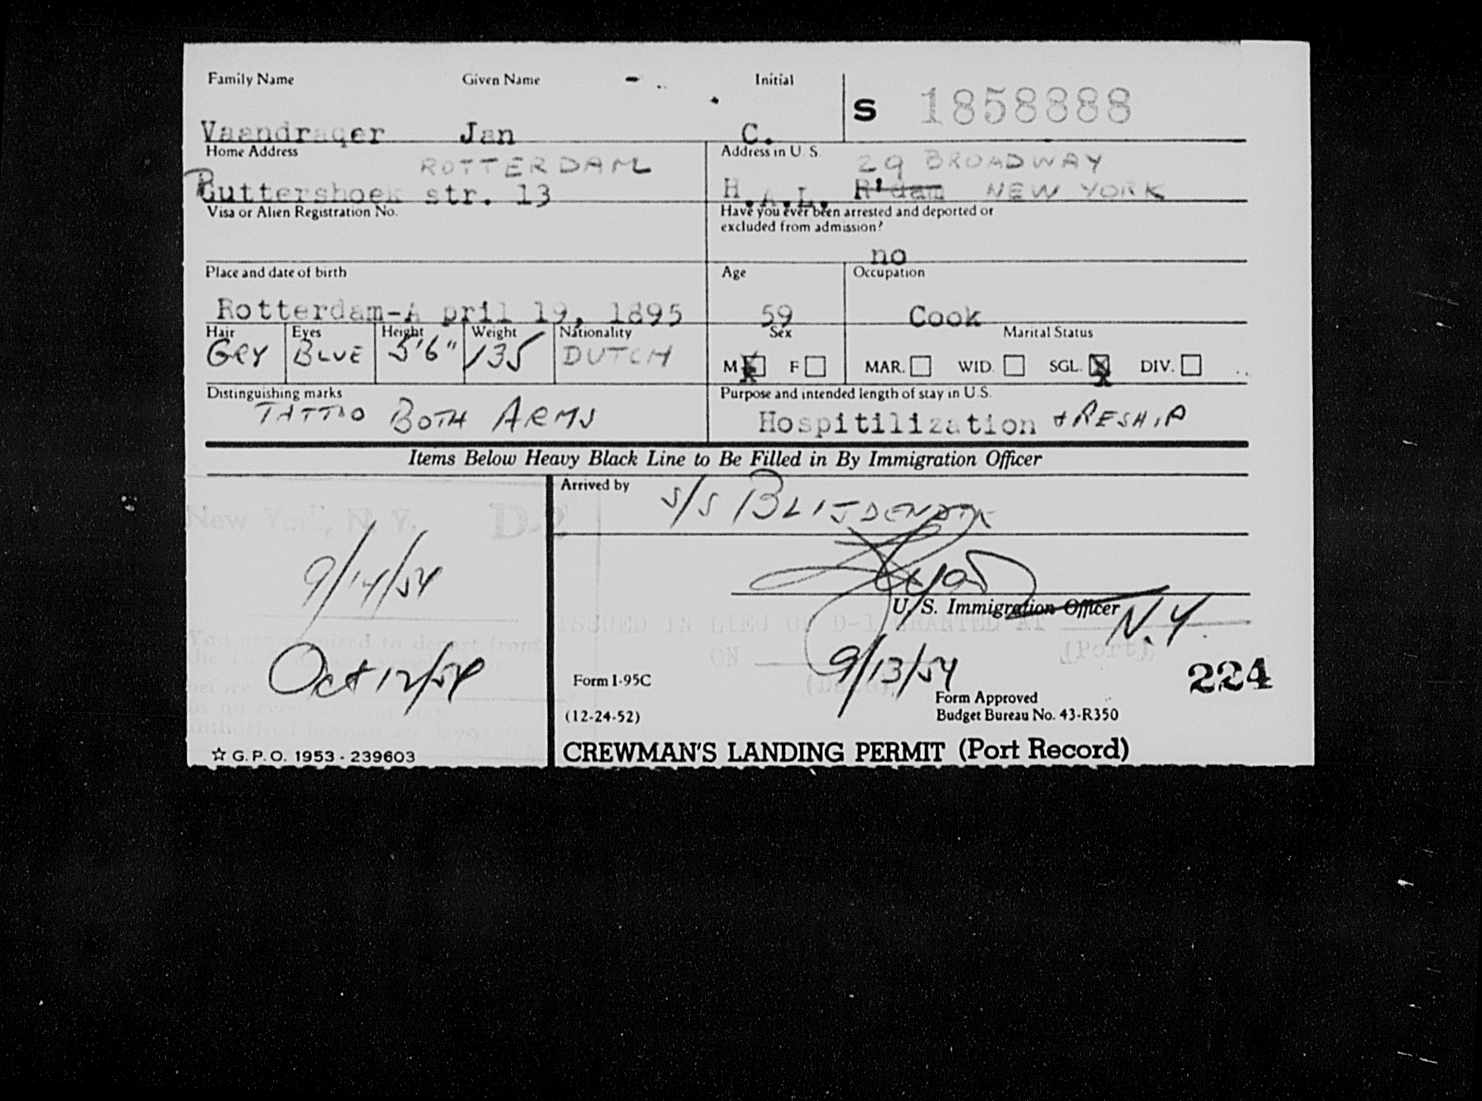 Family Name Given Name Initial
S 1858888
Vaandrager Jan C.
Home Address Address in U. S.
ROTTERDAM 29 BROADWAY
Puttershoek str. 13 H.A.L. R'dam NEW YORK
Visa or Alien Registration No. Have you ever been arrested and deported or
excluded from admission?
no
Place and date of birth Age Occupation
Rotterdam-A pril 19, 1895 59 Cook
Hair Eyes Height Weight Nationality Sex Marital Status
GRY BLUE 5'6" 135 DUTCH M F MAR. WID. SGL. DIV.
Distinguishing marks Purpose and intended length of stay in U.S.
TATTOO BOTH ARMS Hospitilization + RESHIP
Items Below Heavy Black Line to Be Filled in By Immigration Officer
Arrived by S/S BLIJDENDIJK
New York, N. Y. D-2
9/14/54
U. S. Immigration Officer
ISSUED IN LIEU OF D-1 GRANTED AT
N.Y.
(Port)
You are required to depart from
ON
Oct 12/54
9/13/54
(Date)
224
Form I-95C
Form Approved
(12-24-52) Budget Bureau No. 43-R350
☆ G. P. O. 1953 - 239603
CREWMAN'S LANDING PERMIT (Port Record)